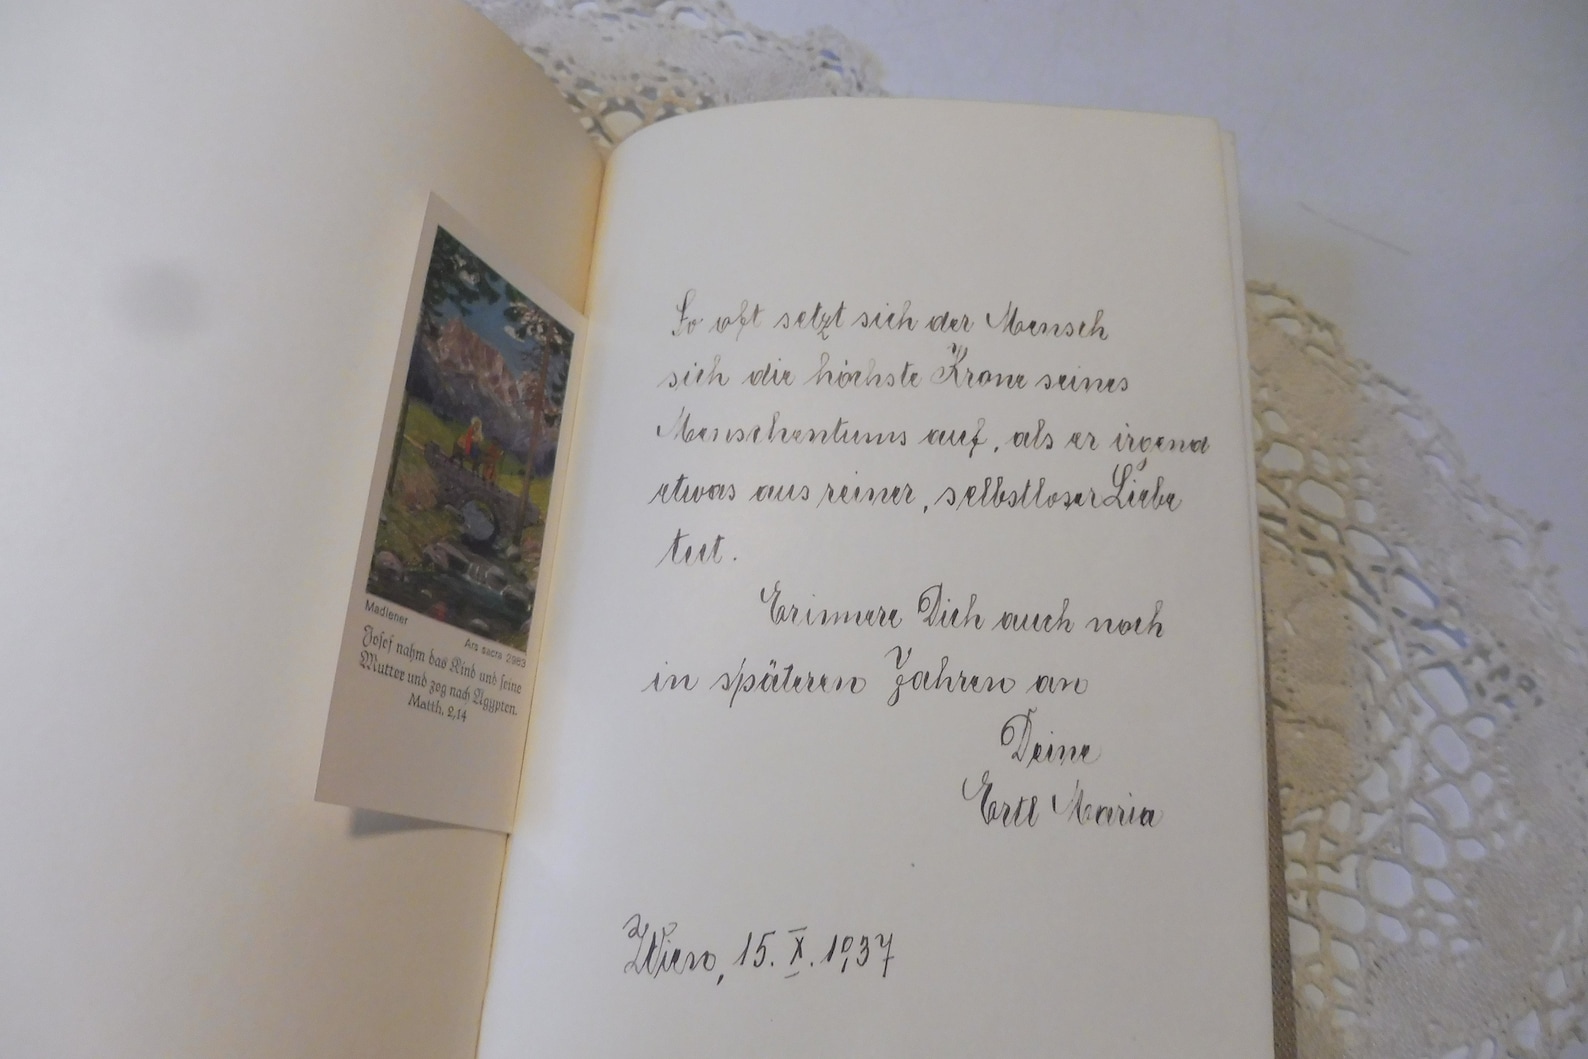 Madlener
Ars sacra 2983
Josef nahm das Kind und seine
Mutter und zog nach Ägypten.
Matth. 2,14
So oft setzt sich der Mensch
sich die höchste Krone seines
Menschentums auf, als er irgend
etwas aus reiner, selbstloser Liebe
tut.
Erinnere Dich auch noch
in späteren Jahren an
Deine
Ertl Maria
Wien, 15. X. 1937